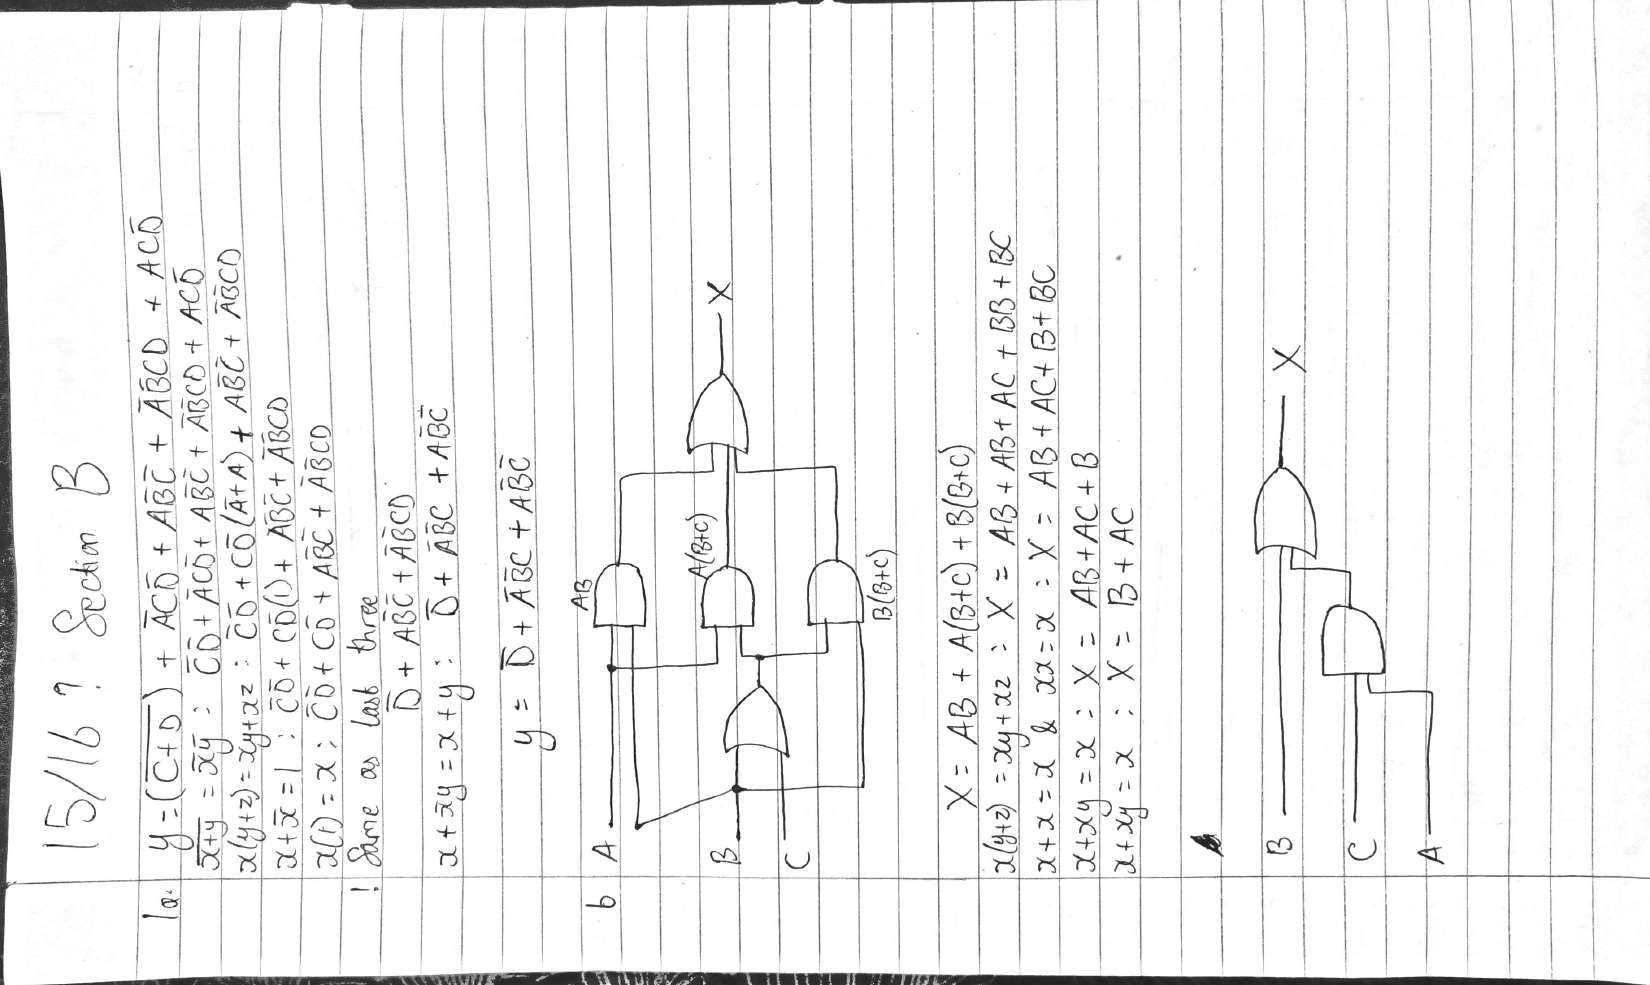 15/16 ? Section B
1a. y = (C̅+̅D̅) + A̅CD̅ + AB̅C̅ + A̅B̅CD + ACD̅
x̅+̅y̅ = x̅y̅ : C̅D̅ + A̅CD̅ + AB̅C̅ + A̅B̅CD + ACD̅
x(y+z) = xy+xz : C̅D̅ + CD̅(A̅+A) + AB̅C̅ + A̅B̅CD
x+x̅ = 1 : C̅D̅ + CD̅(1) + AB̅C̅ + A̅B̅CD
x(1) = x : C̅D̅ + CD̅ + AB̅C̅ + A̅B̅CD
! Same as last three
D̅ + AB̅C̅ + A̅B̅CD
x+x̅y = x+y : D̅ + A̅B̅C + AB̅C̅
y = D̅ + A̅B̅C + AB̅C̅
b
A
AB
A(B+C)
X
B
C
B(B+C)
X = AB + A(B+C) + B(B+C)
x(y+z) = xy+xz : X = AB + AB + AC + BB + BC
x+x = x & xx = x : X = AB + AC + B + BC
x+xy = x : X = AB + AC + B
x+xy = x : X = B + AC
B
X
C
A